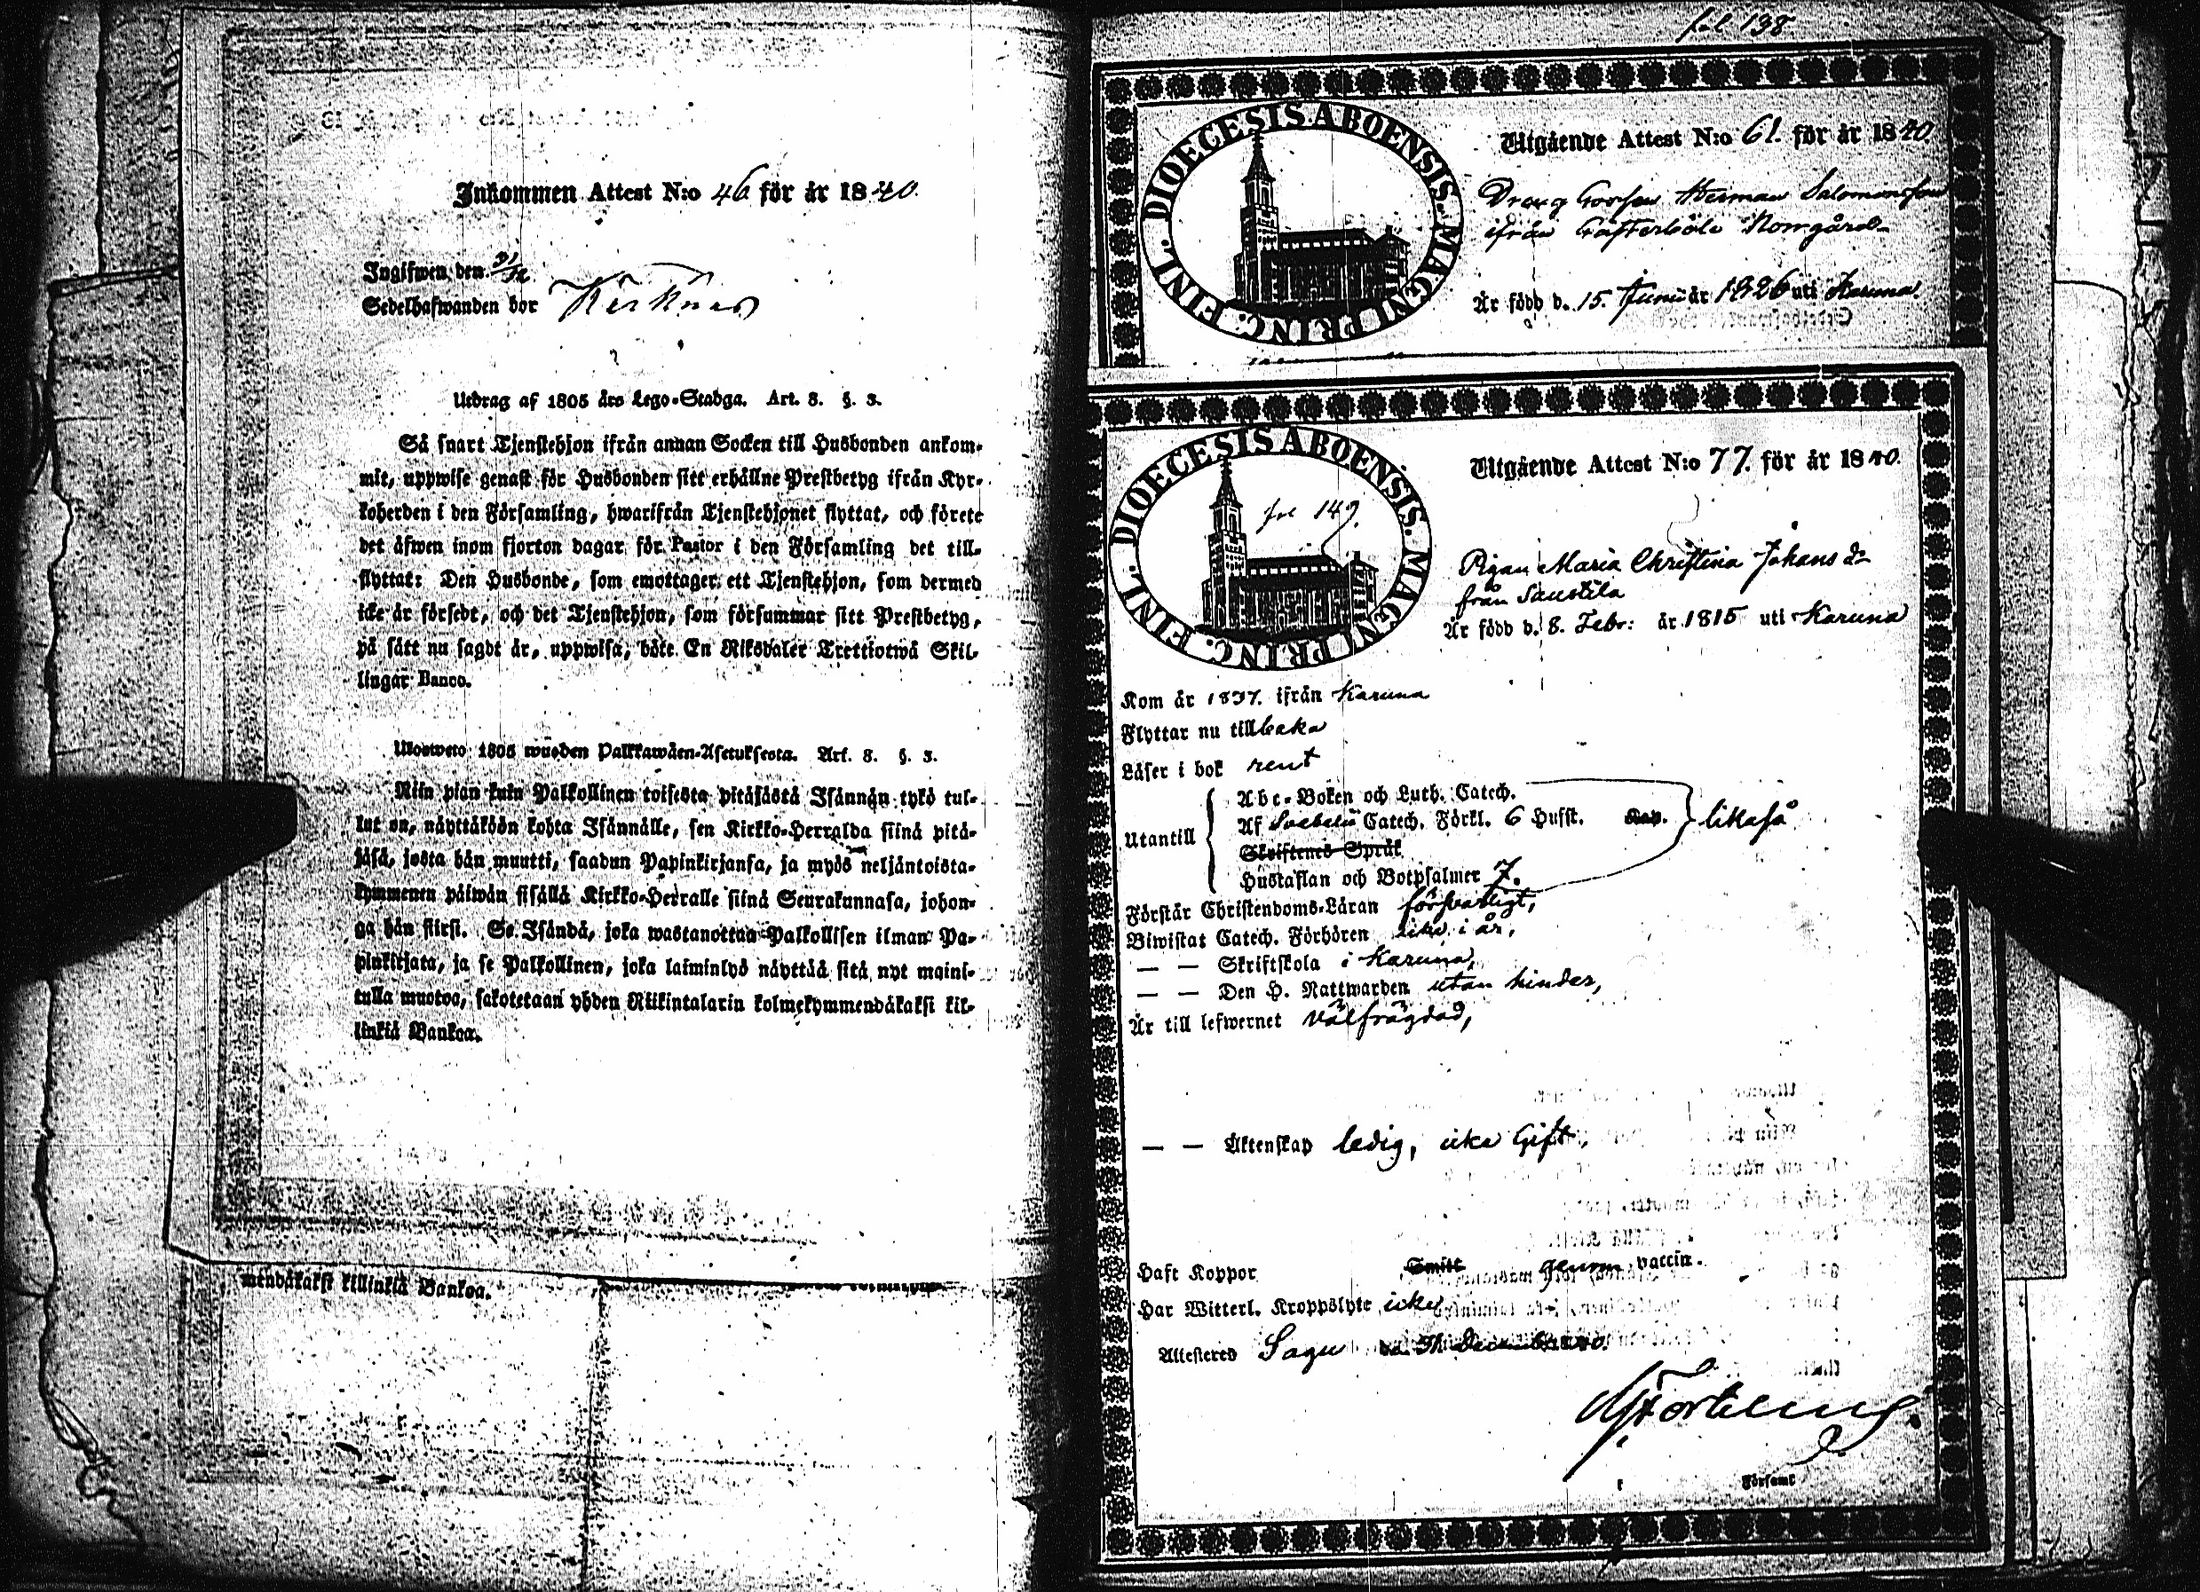 Inkommen Attest N:o 46 för år 1840.
Ingifwen den 31/12
Sedelhafwanden bor Kerknäs
Utdrag af 1805 års Lego-Stadga. Art. 8. §. 3.
Så snart Tjenstehjon ifrån annan Socken till Husbonden ankom-
mit, uppwise genast för Husbonden sitt erhållne Prestbetyg ifrån Kyr-
koherden i den Församling, hwarifrån Tjenstehjonet flyttat, och förete
det äfwen inom fjorton dagar för Pastor i den Församling det till-
flyttat: Den Husbonde, som emottager ett Tjenstehjon, som dermed
icke är försedt, och det Tjenstehjon, som försummar sitt Prestbetyg,
på sätt nu sagdt är, uppwisa, böte En Riksdaler Trettiotwå Skil-
lingar Banco.
Ulosweto 1805 wuoden Palkkawäen-Asetuksesta. Art. 8. §. 3.
Niin pian kuin Palkollinen toisesta pitäjästä Isännän tykö tul-
lut on, näyttäköön kohta Isännälle, sen Kirkko-Herralda siinä pitä-
jäsä, josta hän muutti, saadun Papinkirjansa, ja myös neljäntoista-
kymmenen päiwän sisällä Kirkko-Herralle siinä Seurakunnasa, johon-
ga hän siirsi. Se Isändä, joka wastanottaa Palkollisen ilman Pa-
pinkirjata, ja se Palkollinen, joka laiminlyö näyttää sitä, nyt maini-
tulla muotoa, sakotetaan yhden Riikintalarin kolmekymmendäkaksi kil-
linkiä Bankoa.
mendäkaksi killinkiä Bankoa.
fol 138
FINL. DIOECESIS ABOENSIS. MAGNI PRINC.
Utgående Attest N:o 61. för år 1840.
Dreng Herman Salomonsson
ifrån Norrgård
Är född d. 15. Junii år 1826 uti Karuna.
FINL. DIOECESIS ABOENSIS. MAGNI PRINC.
fol 149.
Utgående Attest N:o 77. för år 1840.
Pigan Maria Christina Johans dr
från Saustila
Är född d. 8. Febr: år 1815 uti Karuna
Kom år 1837. ifrån Karuna
Flyttar nu tillbaka
Läser i bok rent
Utantill
Abc-Boken och Luth. Catech.
Af Svebelii Catech. Förkl. 6 Husst. Kap. likaså
Skriftenes Språk
Hustaflan och Botpsalmer 7.
Förstår Christendoms-Läran försvarligt,
Biwistat Catech. Förhören icke i år,
— — Skriftskola i Karuna,
— — Den H. Nattwarden utan hinder,
Är till lefwernet välfrägdad,
— — Äktenskap ledig, icke Gift,
Haft Koppor Smitt genom vaccin.
Har Witterl. Kroppslyte icke
Attesteres Sagu d. December 1840.
Församl